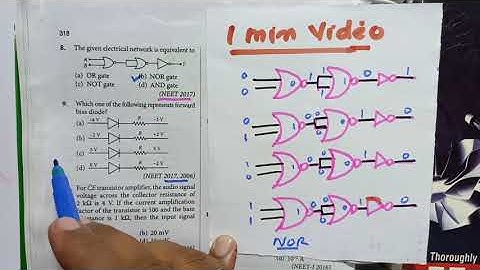 318
8. The given electrical network is equivalent to
A
B
Y
(a) OR gate (b) NOR gate
(c) NOT gate (d) AND gate
(NEET 2017)
9. Which one of the following represents forward
bias diode?
(a) -4 V R -3 V
(b) -2 V R +2 V
(c) 3 V R 5 V
(d) 0 V R -2 V
(NEET 2017, 2006)
For CE transistor amplifier, the audio signal
voltage across the collector resistance of
2 kΩ is 4 V. If the current amplification
factor of the transistor is 100 and the base
resistance is 1 kΩ, then the input signal
(b) 20 mV
1 min Video
0 1 1 0 0 1
0 1
0 0 0 1 1 0
1 0
1 0 0 1 1 0
0 0
1 0 0 1 1 0
1 0
NOR
A
(NEET-I 2016)
Thoroughly